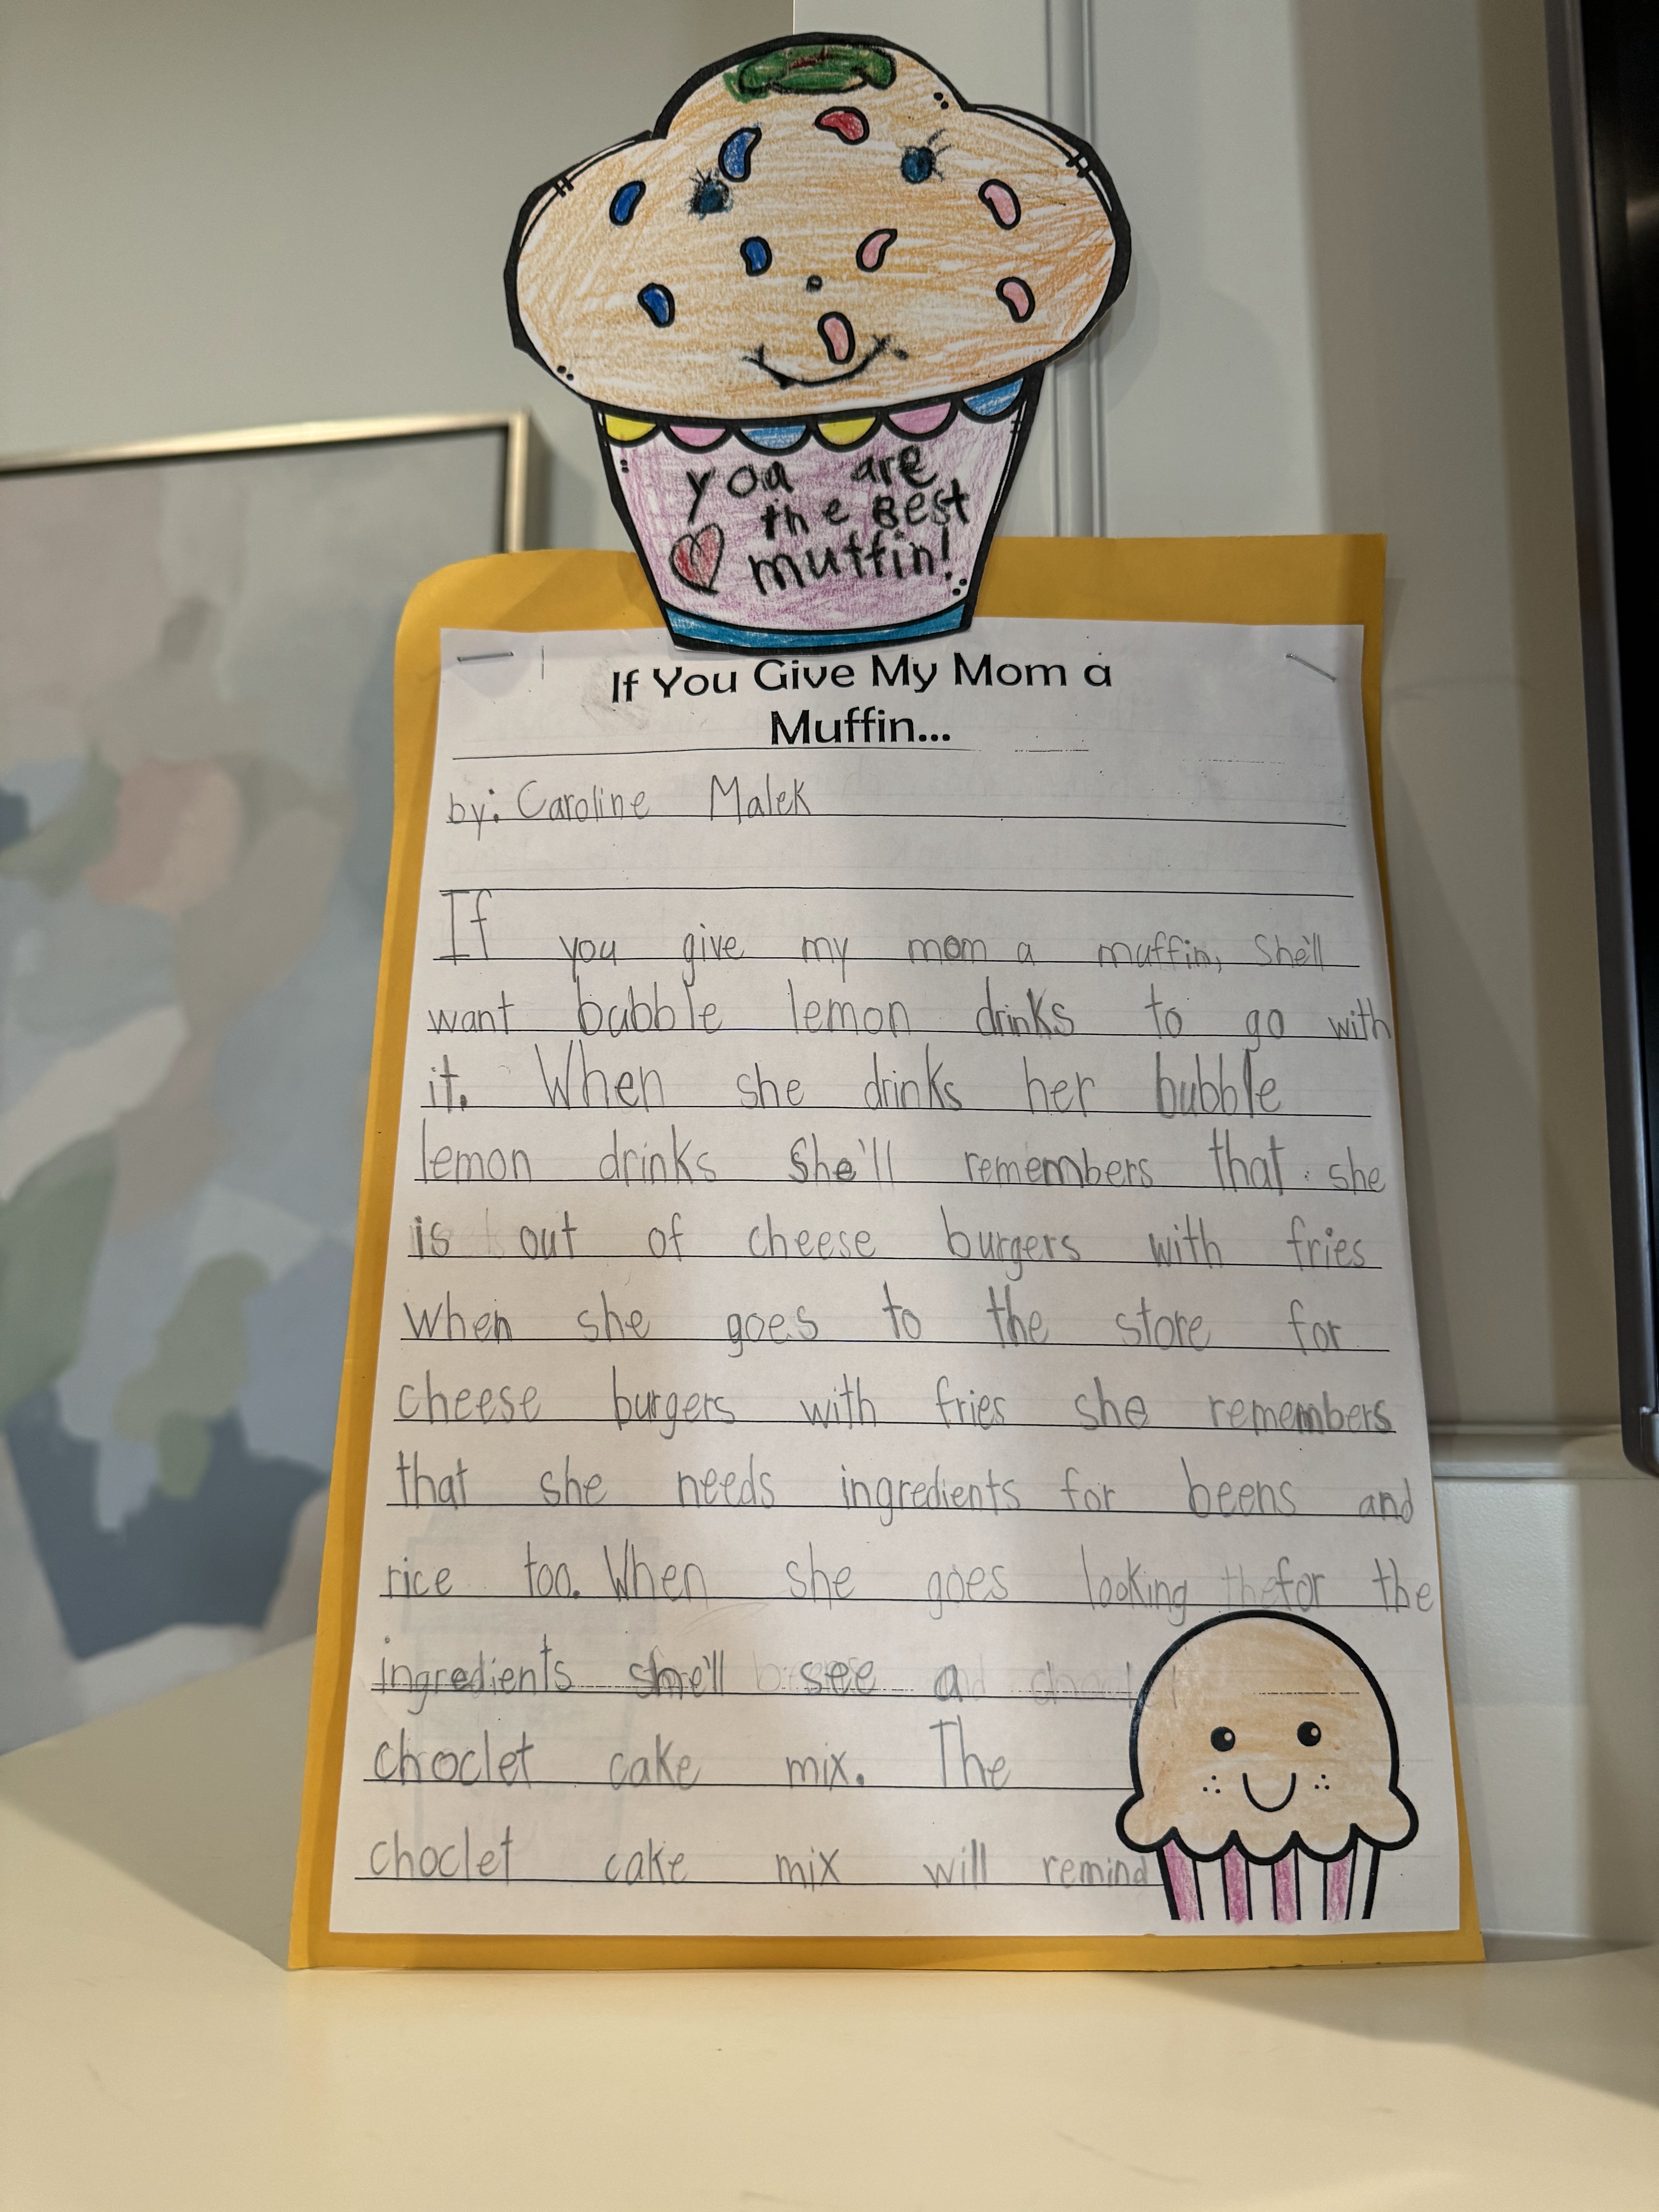 you are
the Best
muffin!
If You Give My Mom a
Muffin...
by: Caroline Malek
If you give my mom a muffin, She'll
want bubble lemon drinks to go with
it. When she drinks her bubble
lemon drinks She'll remembers that she
is out of cheese burgers with fries
when she goes to the store for
cheese burgers with fries she remembers
that she needs ingredients for beens and
rice too. When she goes looking for the
ingredients she'll see a
choclet cake mix. The
choclet cake mix will remind